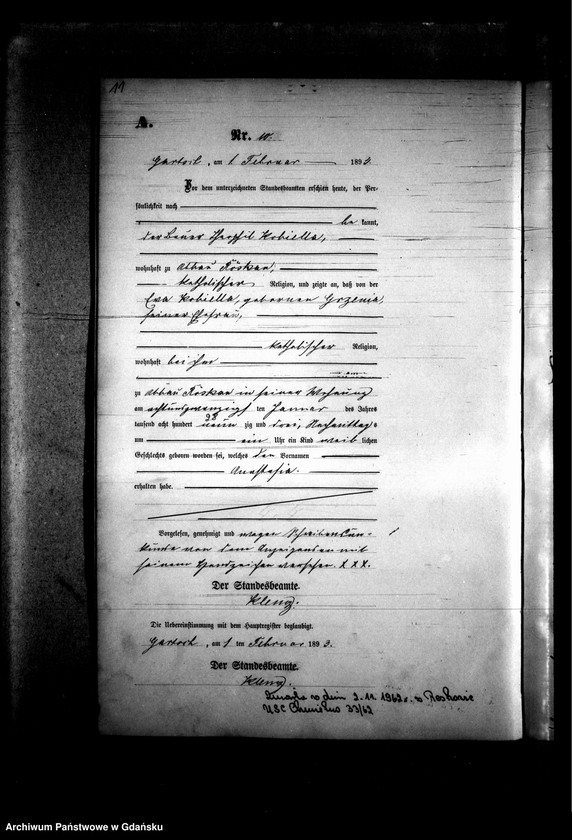 11
A.
Nr. 10.
Gartsch, am 1 Februar 1893.
Vor dem unterzeichneten Standesbeamten erschien heute, der Per-
sönlichkeit nach
be kannt,
der Bauer Kobiella,
wohnhaft zu Abbau Röskau,
katholischer Religion, und zeigte an, daß von der
Eva Kobiella, geborenen Grzenia,
seiner Ehefrau,
katholischer Religion,
wohnhaft bei ihm
zu Abbau Röskau in seiner Wohnung
am achtundzwanzigsten Januar des Jahres
tausend acht hundert neun zig und drei, Nachmittags
um ein Uhr ein Kind weib lichen
Geschlechts geboren worden sei, welches den Vornamen
Anastasia.
erhalten habe.
Vorgelesen, genehmigt und wegen Schreibensun-
kunde von dem Anzeigenden mit
seinem Handzeichen versehen. X X X.
Der Standesbeamte.
Die Uebereinstimmung mit dem Hauptregister beglaubigt.
Gartsch, am 1 ten Februar 1893.
Der Standesbeamte.
Zmarła w dniu 2.11.1962 r. w
USC Chmielno 33/62
Archiwum Państwowe w Gdańsku